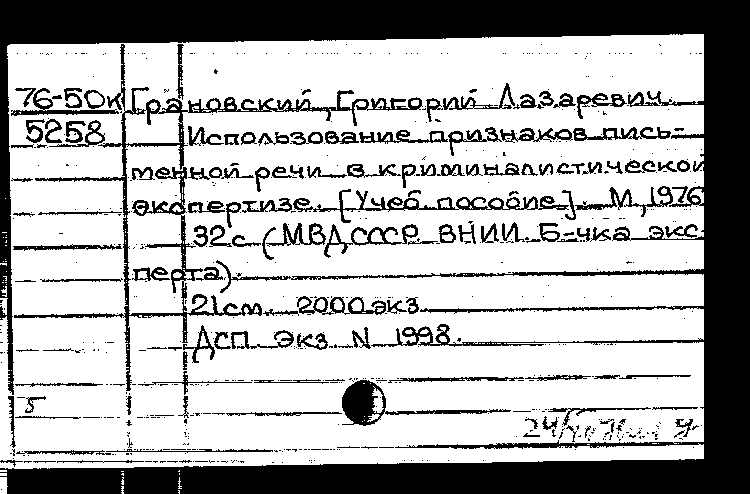 76-50к Грановский, Григорий Лазаревич.
5258 Использование признаков пись-
менной речи в криминалистической
экспертизе. [Учеб. пособие]. М., 1976
32с (МВД СССР. ВНИИ. Б-чка экс-
перта).
21см. 2000 экз.
ДСП. Экз. N 1998.
5
24/